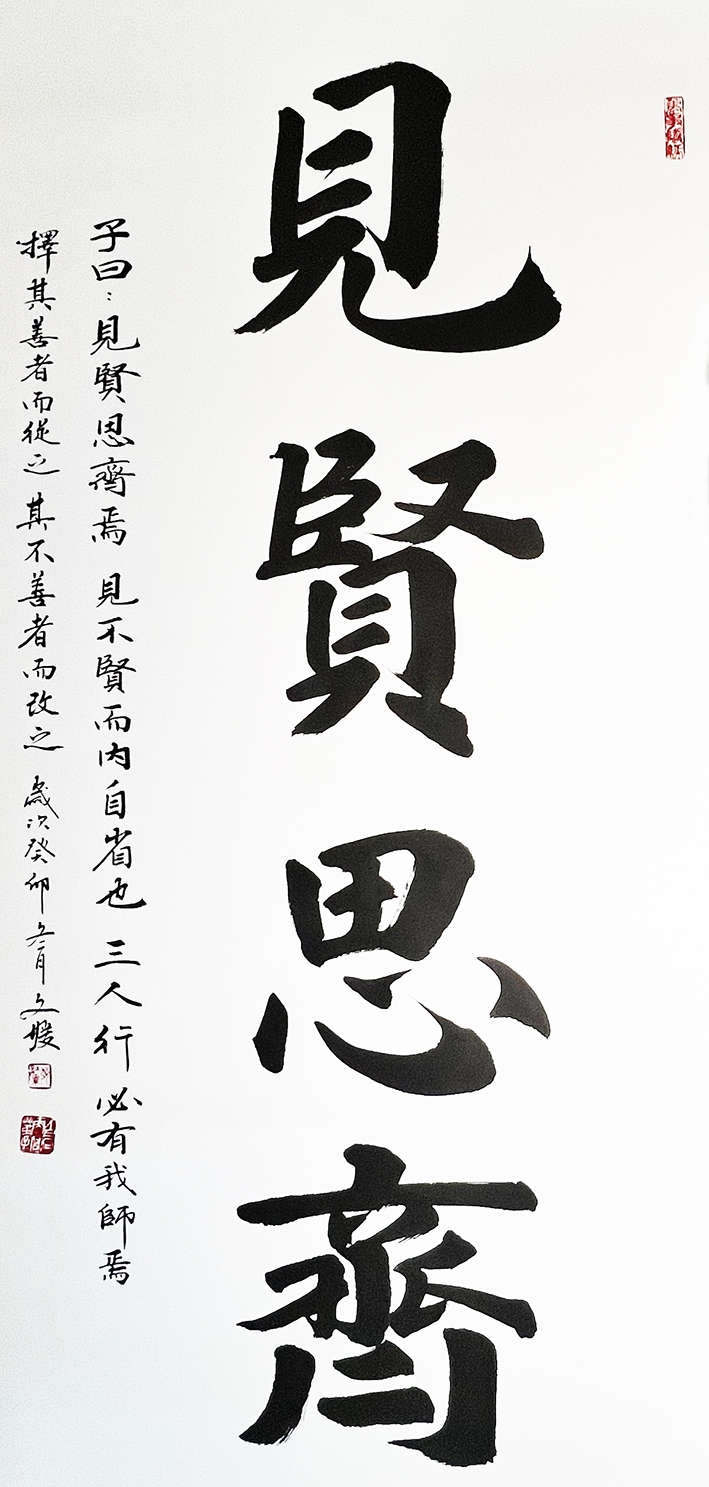 見賢思齊
子曰：見賢思齊焉 見不賢而內自省也 三人行 必有我師焉
擇其善者而從之 其不善者而改之 歲次癸卯 文